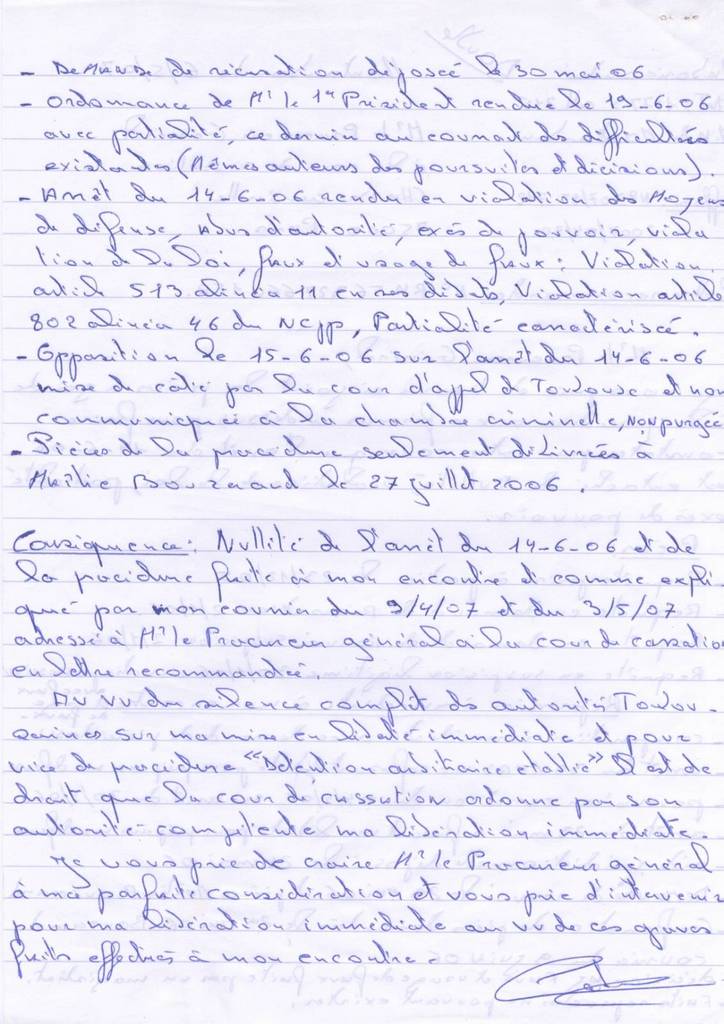 - Demande de récusation déposée le 30 mai 06
- Ordonnance de Mr le 1er Président rendue le 19-6-06.
avec partialité, ce dernier au courant des difficultées
existantes (Mêmes auteurs des poursuites et décisions).
- Arrêt du 14-6-06 rendu en violation des Moyens
de défense, Abus d'autorité, excès de pouvoir, viola
tion de la Loi, faux et usage de faux : Violation.
article 513 alinéa 11 en ses débats, Violation article
802 alinéa 46 du NCPP, Partialité caractériscé.
- Opposition le 15-6-06 sur l'arrêt du 14-6-06
mise de côté par la cour d'appel de Toulouse et non
communiquée à la chambre criminelle, Non purgée
- Pièces de la procédure seulement délivrées à
le 27 juillet 2006.
Conséquence : Nullité de l'arrêt du 14-6-06 et de
la procédure faite à mon encontre et comme expli
qué par mon courrier du 9/4/07 et du 3/5/07
adressé à Mr le Procureur général à la cour de cassation
en lettre recommandée.
Au vu du silence complet des autorités Toulou-
saines sur ma mise en liberté immédiate et pour
vice de procédure "Détention arbitraire etablie" Il est de
droit que la cour de cassation ordonne par son
autorité compétente ma libération immédiate.
Je vous prie de croire Mr le Procureur général
à ma parfaite considération et vous prie d'intervenir
pour ma libération immédiate au vu de ces graves
faits effectués à mon encontre.